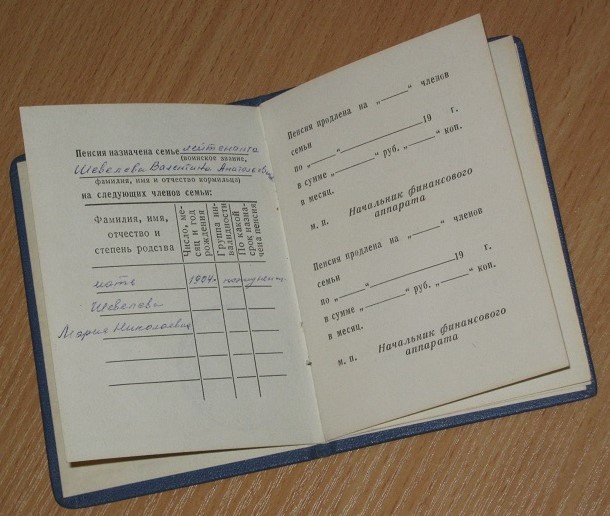 Пенсия назначена семье лейтенанта
(воинское звание,
Шевелёва Валентина Анатольевича
фамилия, имя и отчество кормильца)
на следующих членов семьи:
Фамилия, имя, отчество и степень родства
Число, месяц и год рождения
Группа инвалидности
По какой срок назначена пенсия
мать 1904г.
Шевелева
Мария Николаевна
Пенсия продлена на „____“ членов
семьи
по „____“ ____ 19 г.
в сумме „____“ руб. „____“ коп.
в месяц.
м. п. Начальник финансового
аппарата
Пенсия продлена на „____“ членов
семьи
по „____“ ____ 19 г.
в сумме „____“ руб. „____“ коп.
в месяц.
м. п. Начальник финансового
аппарата